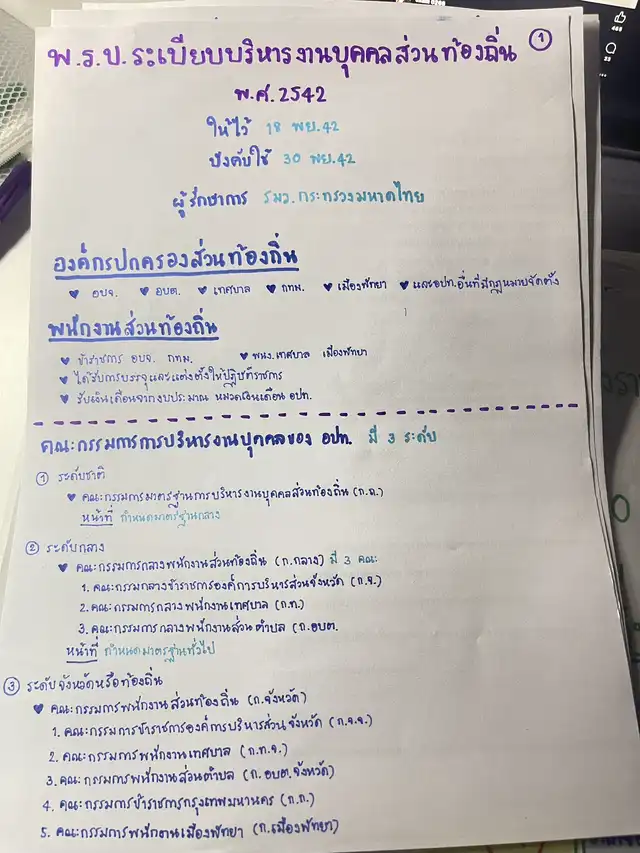 พ.ร.บ.ระเบียบบริหารงานบุคคลส่วนท้องถิ่น ①
พ.ศ.2542
ให้ไว้ 18 พย.42
บังคับใช้ 30 พย.42
ผู้รักษาการ รมว.กระทรวงมหาดไทย
องค์กรปกครองส่วนท้องถิ่น
♥ อบจ. ♥ อบต. ♥ เทศบาล ♥ กทม. ♥ เมืองพัทยา ♥ และอปท.อื่นที่มีกฎหมายจัดตั้ง
พนักงานส่วนท้องถิ่น
♥ ข้าราชการ อบจ. กทม. ♥ พนง.เทศบาล เมืองพัทยา
♥ ได้รับการบรรจุและแต่งตั้งให้ปฏิบัติราชการ
♥ รับเงินเดือนจากงบประมาณ หมวดเงินเดือน อปท.
คณะกรรมการการบริหารงานบุคคลของ อปท. มี 3 ระดับ
① ระดับชาติ
♥ คณะกรรมการมาตรฐานการบริหารงานบุคคลส่วนท้องถิ่น (ก.ถ.)
หน้าที่ กำหนดมาตรฐานกลาง
② ระดับกลาง
♥ คณะกรรมการกลางพนักงานส่วนท้องถิ่น (ก.กลาง) มี 3 คณะ
1. คณะกรรมกลางข้าราชการองค์การบริหารส่วนจังหวัด (ก.จ.)
2. คณะกรรมการกลางพนักงานเทศบาล (ก.ท.)
3. คณะกรรมการกลางพนักงานส่วนตำบล (ก.อบต.
หน้าที่ กำหนดมาตรฐานทั่วไป
③ ระดับจังหวัดหรือท้องถิ่น
♥ คณะกรรมการพนักงานส่วนท้องถิ่น (ก.จังหวัด)
1. คณะกรรมการข้าราชการองค์การบริหารส่วนจังหวัด (ก.จ.จ.)
2. คณะกรรมการพนักงานเทศบาล (ก.ท.จ.)
3. คณะกรรมการพนักงานส่วนตำบล (ก.อบต.จังหวัด)
4. คณะกรรมการข้าราชการกรุงเทพมหานคร (ก.ก.)
5. คณะกรรมการพนักงานเมืองพัทยา (ก.เมืองพัทยา)